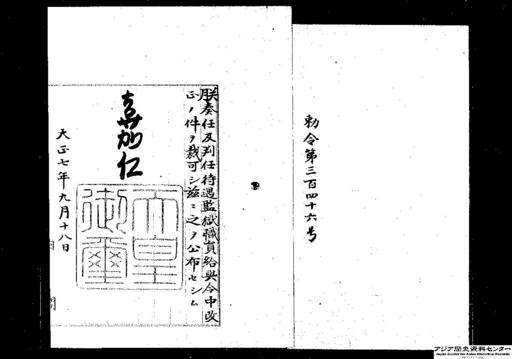 勅令第三百四十六号
朕奏任及判任待遇監獄職員給与令中改
正ノ件ヲ裁可シ茲ニ之ヲ公布セシム
嘉仁
天皇
御璽
大正七年九月十八日
アジア歴史資料センター
Japan Center for Asian Historical Records